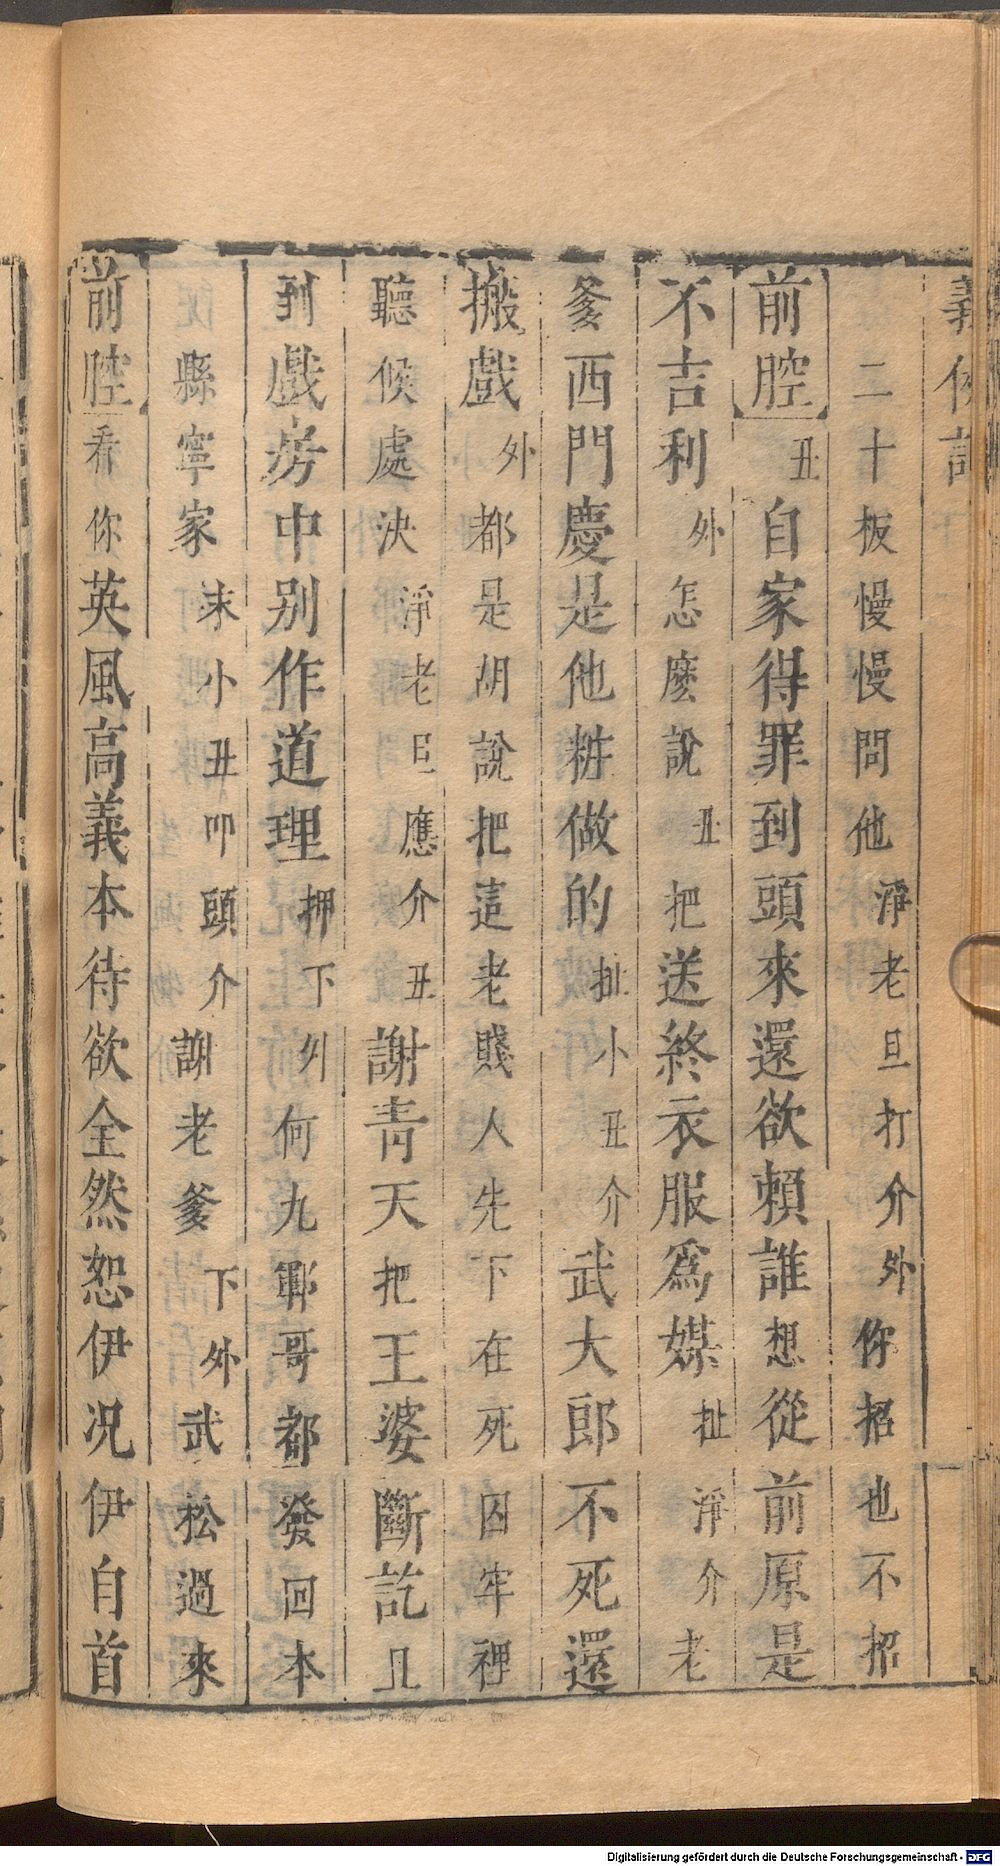 義俠記
二十板慢慢問他淨老旦打介外你招也不招
前腔丑自家得罪到頭來還欲賴誰想從前原是
不吉利外怎麽說丑把送終衣服爲媒扯淨介老
爹西門慶是他粧做的扯小丑介武大郎不死還
搬戲外都是胡說把這老賤人先下在死囚牢裡
聽候處決淨老旦應介丑謝青天把王婆斷訖且
到戲房中别作道理押下外何九鄆哥都發回本
縣寧家末小丑叩頭介謝老爹下外武松過來
前腔看你英風高義本待欲全然恕伊况伊自首
Digitalisierung gefördert durch die Deutsche Forschungsgemeinschaft - DFG